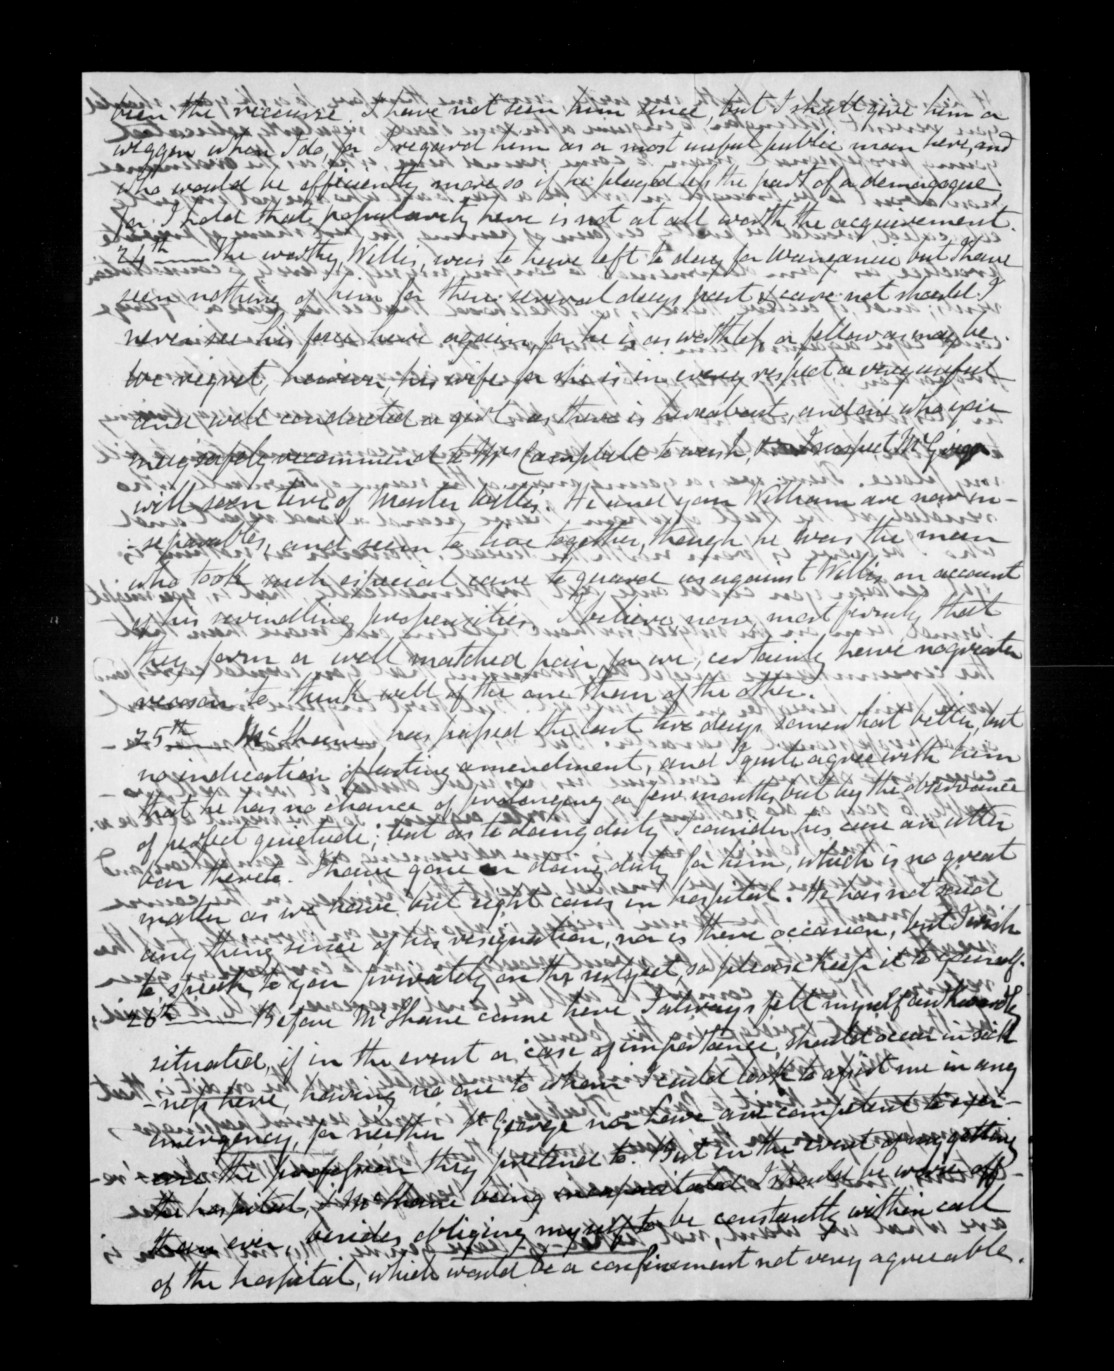 been the recourse. I have not seen him since, but I shall give him a
wiggen when I do, for I regard him as a most useful public man here, and
who would be efficiently more so if he played less the part of a demagogue.
for I hold that popularity here is not at all worth the acquirement.
24th — The worthy Willis, was to have left to day for Wanganui but I have
seen nothing of him for these several days past & care not should I
never see his face here again, for he is as worthless a fellow as may be.
We regret, however, his wife for she is in every respect a very useful
and well conducted a girl as there is hereabout, and one who you
may safely recommend to Mrs Campbell to wash, I suspect McGregor
will soon tire of Master Willis. He and your William are now in-
-separables, and seem to live together, though he was the man
who took such especial care to guard us against Willis on account
of his swindling propensities. I believe, now, most firmly that
they form a well matched pair for we, certainly have no greater
reason to think well of the one than of the other.
25th — McShane, has passed the last two days somewhat better, but
no indication of lasting amendment, and I quite agree with him
that he has no chance of prolonging a few months, but by the observance
of perfect quietude; but as to doing duty I consider his case an utter
bar thereto. I have gone on doing duty for him, which is no great
matter as we have but eight cases in hospital. He has not said
any thing since of his resignation, nor is there occasion, but I wish
to speak to you privately on the subject, so please keep it to yourself.
26th — Before McShane came here I always felt myself awkwardly
situated, if in the event a case of importance, should occur in sick
-ness here, having no one to whom I could look to assist me in any
emergency, for neither St George nor are competent to exer-
cise the profession they pretend to. But in the event of my getting
the hospital, & McShane being incapacitated I should be worse off
than ever, besides obliging myself to be constantly within call
of the hospital, which would be a confinement not very agreeable.